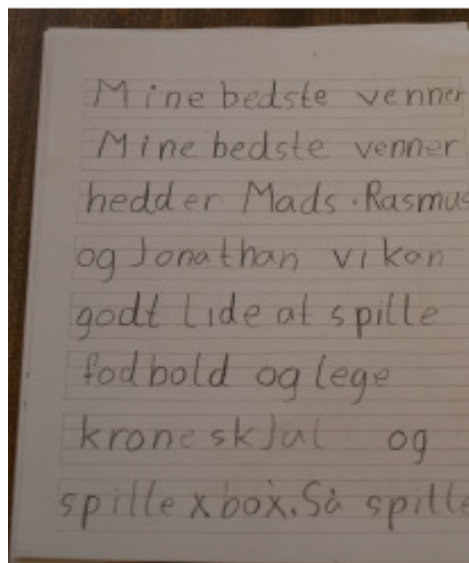 Mine bedste venner
Mine bedste venner
hedder Mads. Rasmus
og Jonathan vi kan
godt lide at spille
fodbold og lege
krone skjul og
spille xbox. Så spille